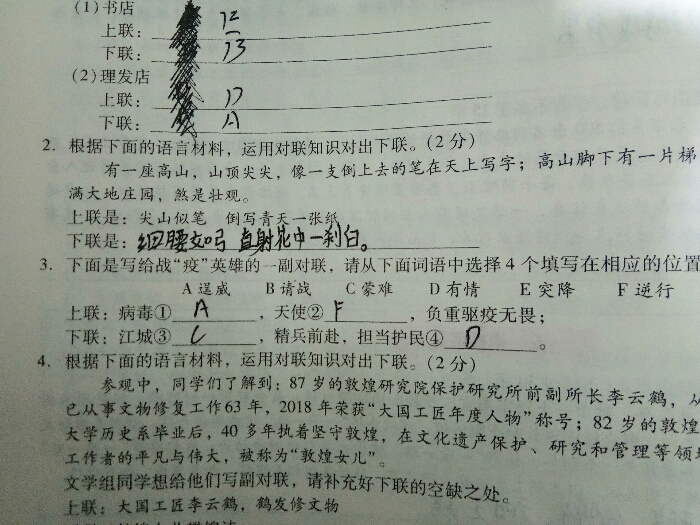 (1)书店
上联:
下联: 13
(2)理发店
上联: D
下联: A
2. 根据下面的语言材料,运用对联知识对出下联。(2分)
有一座高山,山顶尖尖,像一支倒上去的笔在天上写字;高山脚下有一片梯
满大地庄园,煞是壮观。
上联是:尖山似笔 倒写青天一张纸
下联是:细腰如弓 直射花中一刹白。
3. 下面是写给战“疫”英雄的一副对联,请从下面词语中选择4个填写在相应的位置
A 逞威 B 请战 C 蒙难 D 有情 E 突降 F 逆行
上联:病毒① A ,天使② F ,负重驱疫无畏;
下联:江城③ C ,精兵前赴,担当护民④ D 。
4. 根据下面的语言材料,运用对联知识对出下联。(2分)
参观中,同学们了解到:87岁的敦煌研究院保护研究所前副所长李云鹤,从
已从事文物修复工作63年,2018年荣获“大国工匠年度人物”称号;82岁的敦煌
大学历史系毕业后,40多年执着坚守敦煌,在文化遗产保护、研究和管理等领
工作者的平凡与伟大,被称为“敦煌女儿”。
文学组同学想给他们写副对联,请补充好下联的空缺之处。
上联:大国工匠李云鹤,鹤发修文物